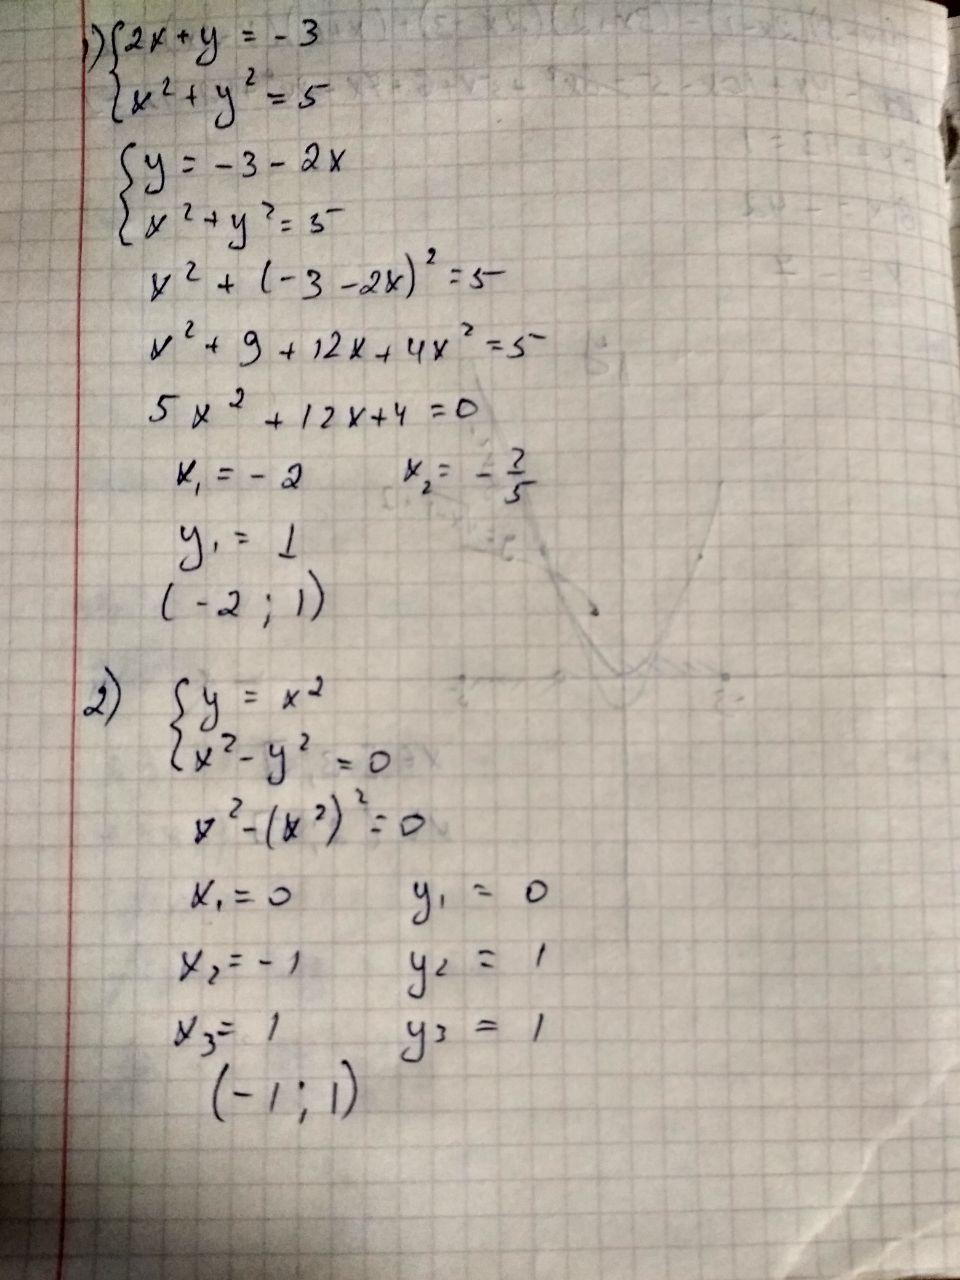 1) {2x + y = -3
{x² + y² = 5
{y = -3 - 2x
{x² + y² = 5
x² + (-3 - 2x)² = 5
x² + 9 + 12x + 4x² = 5
5x² + 12x + 4 = 0
x₁ = -2 x₂ = -2/5
y₁ = 1
(-2 ; 1)
2) {y = x²
{x² - y² = 0
x² - (x²)² = 0
x₁ = 0 y₁ = 0
x₂ = -1 y₂ = 1
x₃ = 1 y₃ = 1
(-1 ; 1)